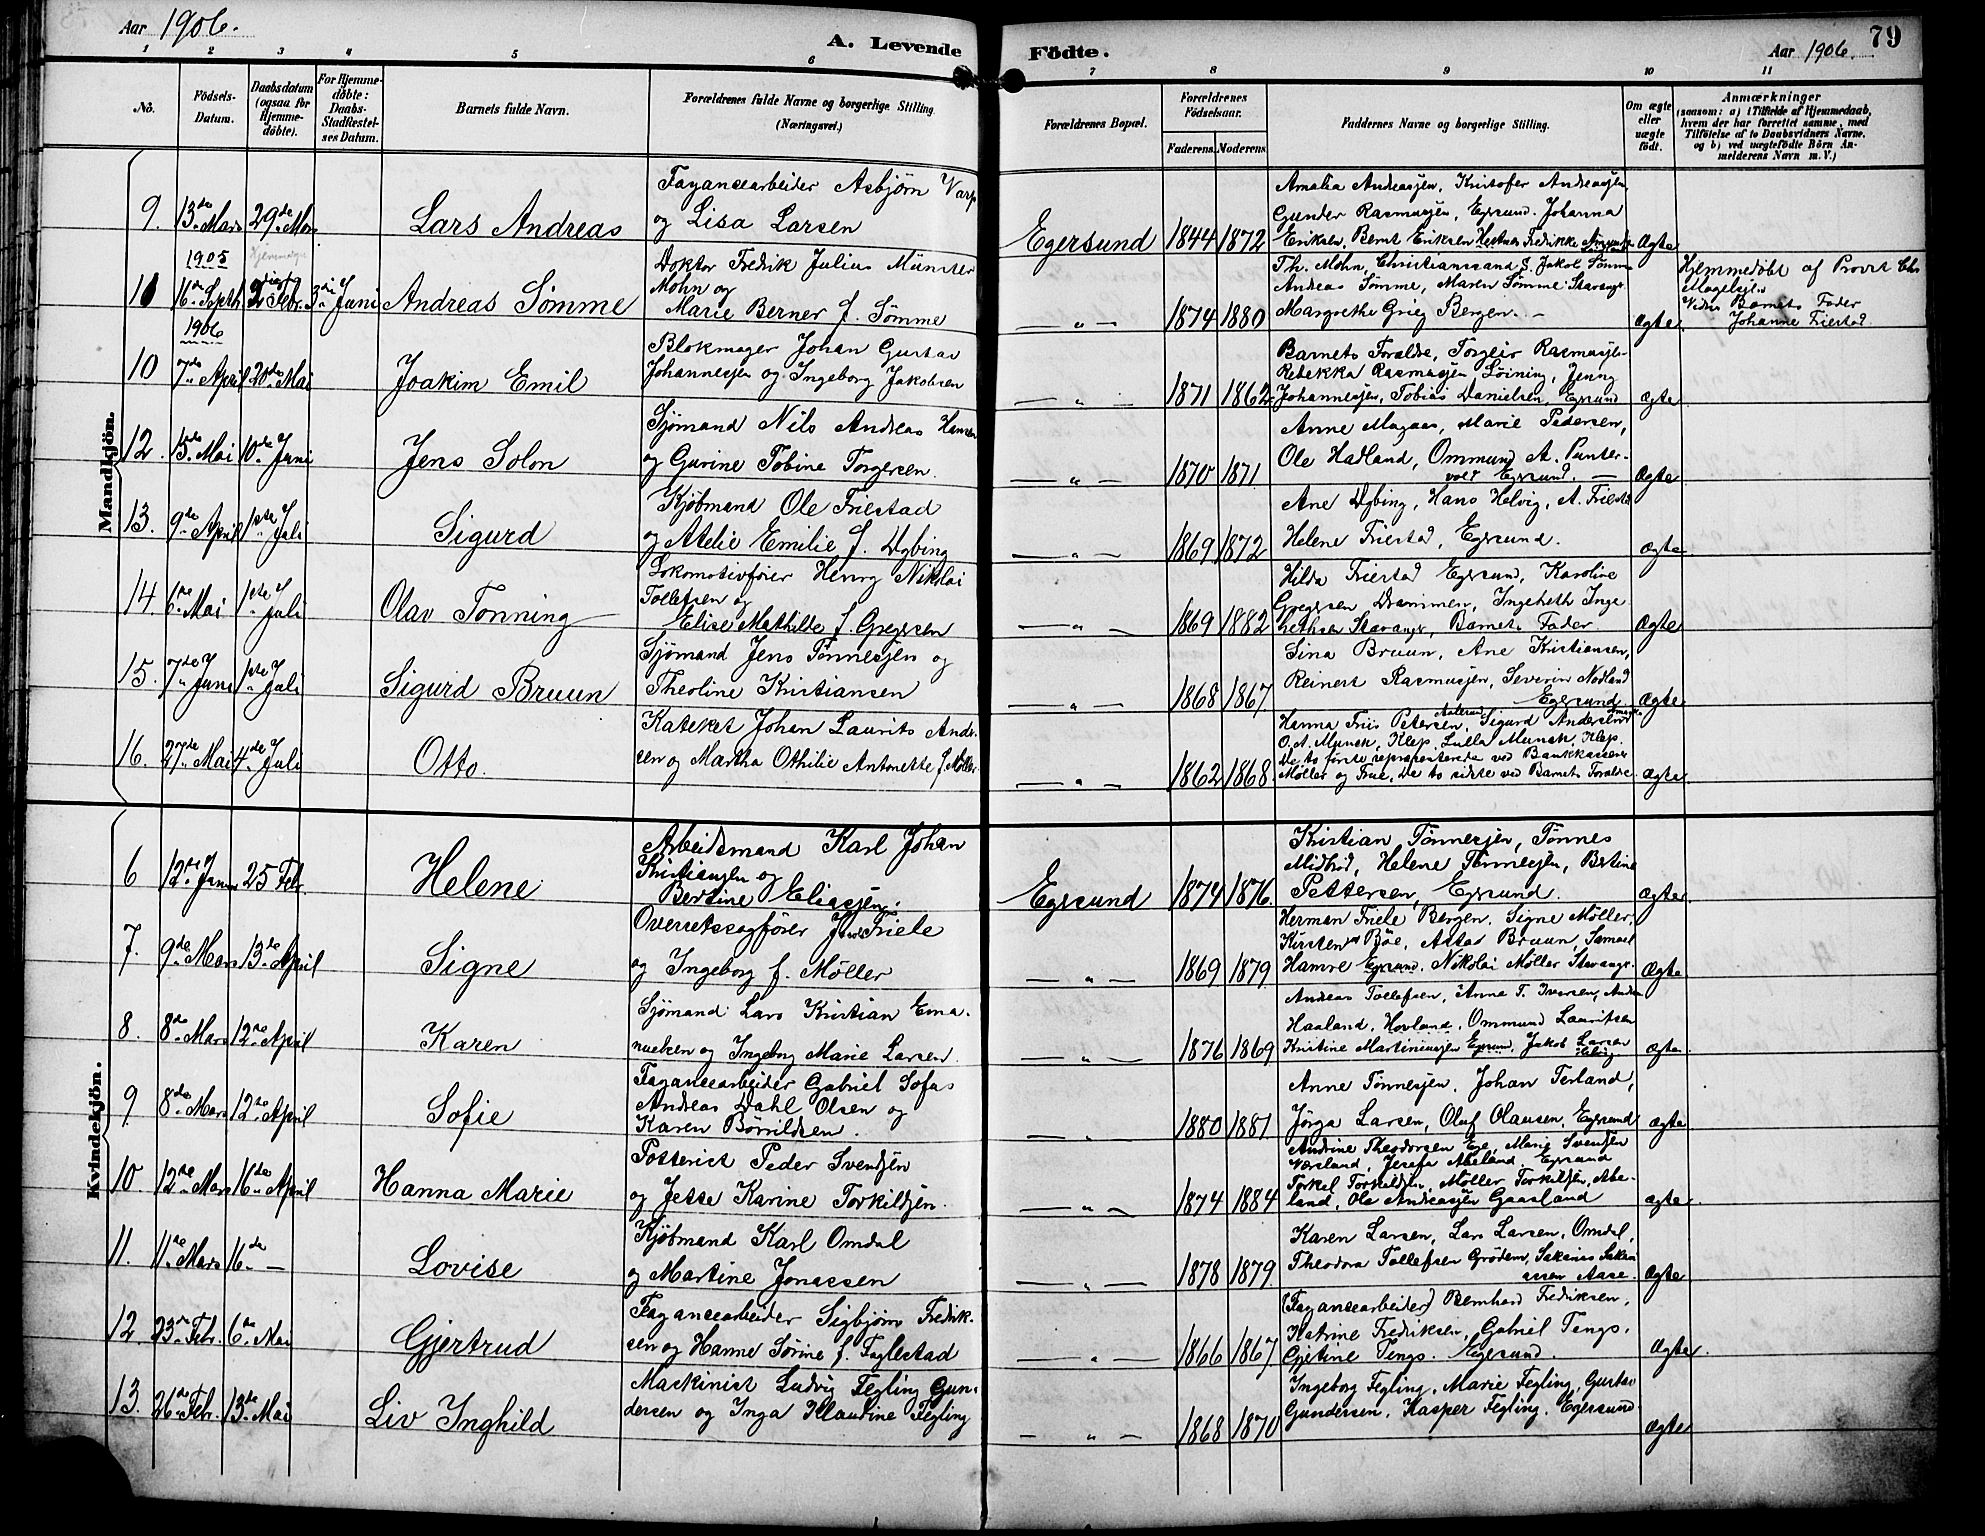 Aar 1906.
A. Levende Födte.
Aar 1906.
79
1 2 3 4 5 6 7 8 9 10 11
No.
Födsels-Datum.
Daabsdatum (ogsaa for Hjemmedöbte).
For Hjemmedöbte: Daabs-Stadfæstelses Datum.
Barnets fulde Navn.
Forældrenes fulde Navne og borgerlige Stilling (Næringsvei.)
Forældrenes Bopæl.
Forældrenes Födselsaar.
Faderens. Moderens.
Faddernes Navne og borgerlige Stilling.
Om ægte eller uægte födt.
Anmærkninger
(saasom: a) i Tilfælde af Hjemmedaab, hvem der har forrettet samme, med Tilföielse af to Daabsvidners Navne, og b) ved uægtefödte Börn Anmelderens Navn m. V.)
Mandkjön.
9. 13de Mars 29de Mars Lars Andreas
Fayancearbeider Asbjørn Varp
og Lisa Larsen
Egersund 1844 1872
Amalia Andreassen, Kristofer Andreassen,
Gunder Rasmussen, Egrsund. Johanna
Eriksen, Bernt Eriksen Hestnes Fredrikke
Ægte
1905
11 16de Septb. Febr. 3die Juni Andreas Sömme
Doktor Fredrik Julius Münster
Mohn og
Marie Berner f. Sömme
— " — 1874 1880
Th. Mohn, Christianssand S. Jakob Sömme
Andreas Sömme, Maren Sömme Stavangr
Margrethe Grieg Bergen. —
Ægte
Hjemmedöbt af Provst Chr
Magelsen
Vidner Barnets Fader
Johanne Friestad
1906
10 7de April 20de Mai Joakim Emil
Blokmager Johan Gustav
Johannessen og Ingeborg Jakobsen
— " — 1871 1862
Barnets Forældre, Torgeir Rasmussen
Rebekka Rasmussen Löining, Jenny
Johannessen, Tobias Danielsen, Egrsund
Ægte
12. 15de Mai 10de Juni Jens Solon
Sjømand Nils Andreas Hansen
og Gurine Tobine Torgersen.
— " — 1870 1871
Anne Magaas, Marie Pedersen,
Ole Hadland, Ommund A. Punter-
vold Egrsund. —
Ægte
13. 9de April 1ste Juli Sigurd
Kjøbmand Ole Friestad
og Atelie Emilie f. Dybing
— " — 1869 1872
Ane Dybing, Hans Helvig, A. Friestad
Helene Friestad, Egrsund.
Ægte
14 6te Mai 1ste Juli Olav Tonning
Lokomotivfører Henry Nikolai
Tollefsen og
Elise Mathilde f. Gregersen
— " — 1869 1882
Hilda Friestad Egersund, Karoline
Gregersen Drammen, Ingebreth Inge
brethsen Stavangr, Barnets Fader
Ægte
15. 7de Juni 1ste Juli Sigurd Bruun
Sjømand Jens Tønnessen og
Theoline Kristiansen
— " — 1868 1867
Sina Bruun, Ane Kristiansen,
Reinert Rasmussen, Severin Nodland
Egersund
Ægte
16. 27de Mai 4de Juli Otto.
Kateket Johan Laurits Ander-
sen og Martha Othilie Antonette f. Møller.
— " — 1862 1868
Hanna Friis Petersen, Aalesund, Sigurd Andersen
O. A. Munch, Klep, Lulla Munch, Klep.
De to første repræsenterede ved Bankkasserer
Møller og Frue, De to sidste ved Barnets Forældre
Ægte
Kvindekjön.
6 12te Janr 25 Febr. Helene
Arbeidsmand Karl Johan
Kristiansen og
Bertine Eliassen.
Egrsund 1874 1876.
Kristian Tønnessen, Tønnes
Midbrød, Helene Tønnessen, Bertine
Pettersen, Egrsund.
Ægte
7. 9de Mars 13de April Signe
Overretssagfører Friele
og Ingeborg f. Møller
— " — 1869 1879
Herman Friele Bergen, Signe Møller,
Kirsten Böe, Bruun, Samuel
Hamre Egrsund, Nikolai Møller Stavangr.
Ægte
8. 8de Mars 12te April Karen
Sjømand Lars Kristian Ema-
nuelsen og Ingeborg Marie Larsen.
— " — 1876 1869
Andreas Tollefsen, Anne T. Iversen,
Haaland, Hovland, Ommund Lauritsen
Kristine Martiniussen Egrsund, Jakob Larsen
Ægte
9 8de Mars 12te April Sofie
Fayancearbeider Gabriel Sofus
Andreas Dahl Olsen og
Karen Børrildsen.
— " — 1880 1881
Anne Tønnessen, Johan Terland,
Jørga Larsen, Oluf Olausen, Egrsund
Ægte
10 12te Mars 16de April Hanna Marie
Potterist Peder Svendsen
og Jette Karine Torkildsen.
— " — 1874 1884
Andrine Theodorsen Ege, Marie Svendsen
Nærsland, Josefa Abeland, Egrsund
Torkel Torkildsen, Møller Torkildsen, Abe-
land, Ole Andreassen Gaasland
Ægte
11. 11te Mars 16de — Lovise
Kjøbmand Karl Omdal
og Martine Jonassen
— " — 1878 1879
Karen Larsen, Lars Larsen, Omdal,
Theodora Tollefsen Grødem, Sakarias Sakari
assen Aase.
Ægte
12. 23de Febr. 6te Mai Gjertrud
Fayancearbeider Sigbjørn Fredrik-
sen og Hanne Sörine f. Fuglestad
— " — 1866 1867
(Fayancearbeider) Bernhard Fredriksen,
Katrine Fredriksen, Gabriel Tengs,
Gjetine Tengs. Egersund.
Ægte
13. 26de Febr. 13de Mai Liv Inghild
Maskinist Ludvig Fegling Gun-
dersen og Inga Klaudine Fegling
— " — 1868 1870
Ingeborg Fegling, Marie Fegling, Gustav
Gundersen, Kasper Fegling, Egersund
Ægte